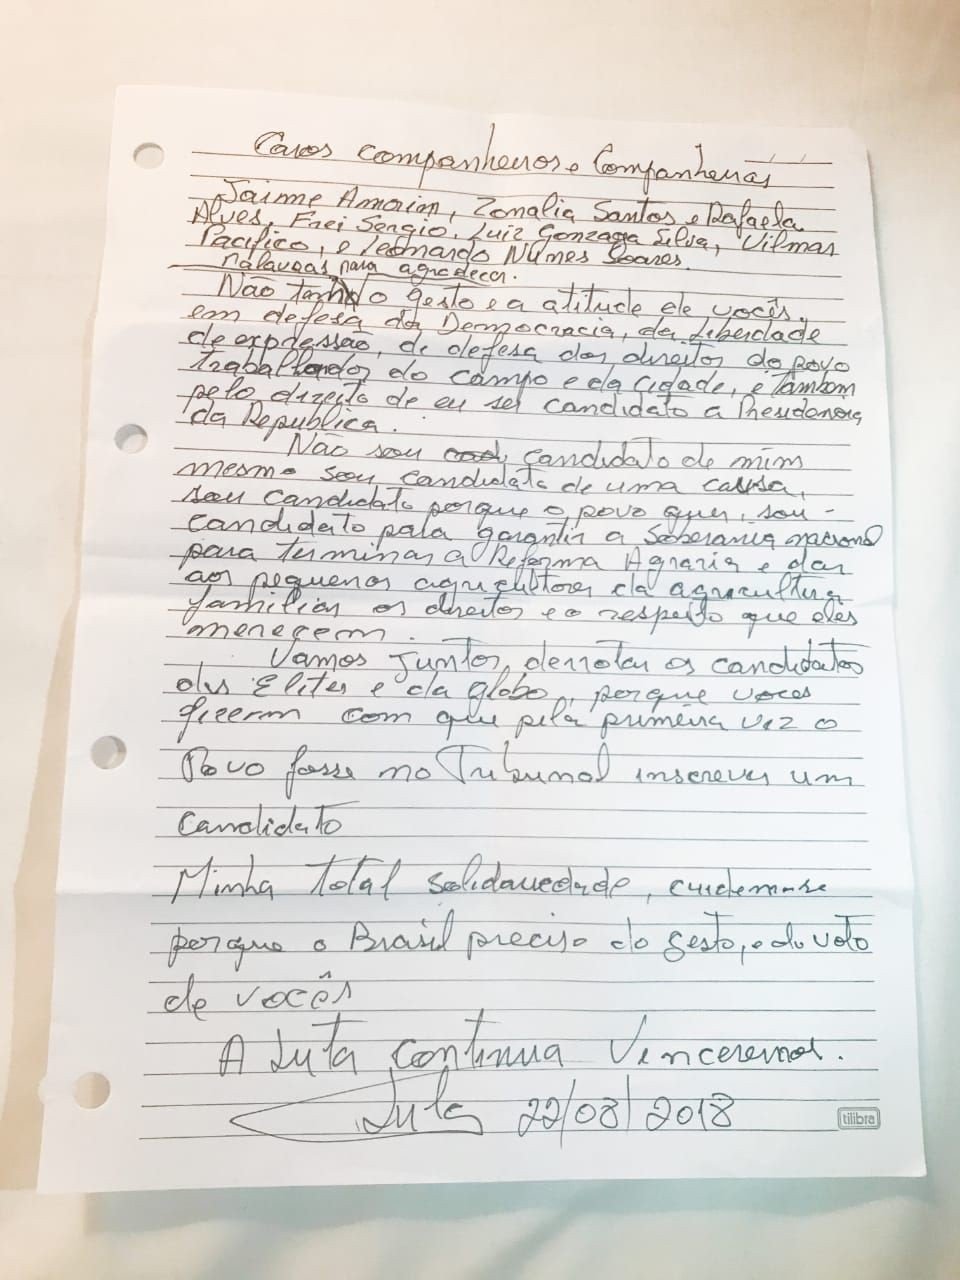 Caros companheiros e Companheiras
Jaime Amorim, Zonalia Santos e Rafaela
Alves, Frei Sergio, Luiz Gonzaga Silva, Vilmar
Pacifico, e Leonardo Nunes Soares.
Não tenho palavras para agradecer.
o gesto e a atitude de vocês,
em defesa da Democracia, da liberdade
de expressão, de defesa dos direitos do povo
trabalhador do campo e da cidade, e tambem
pelo direito de eu ser candidato a Presidencia
da Republica.
Não sou candidato de mim
mesmo sou candidato de uma causa,
sou candidato porque o povo quer, sou
candidato para garantir a Soberania nacional
para terminar a Reforma Agraria e dar
aos pequenos agricultores da agricultura
familiar os direitos e o respeito que eles
merecem.
Vamos juntos, derrotar os candidatos
das Elites e da globo, porque voces
fizerm com que pela primeira vez o
Povo fosse no Tribunal inscrever um
candidato
Minha total solidariedade, cuidem-se
porque o Brasil precisa do gesto, e do voto
de vocês
A Luta continua Venceremos.
Lula 22/08/2018
tilibra